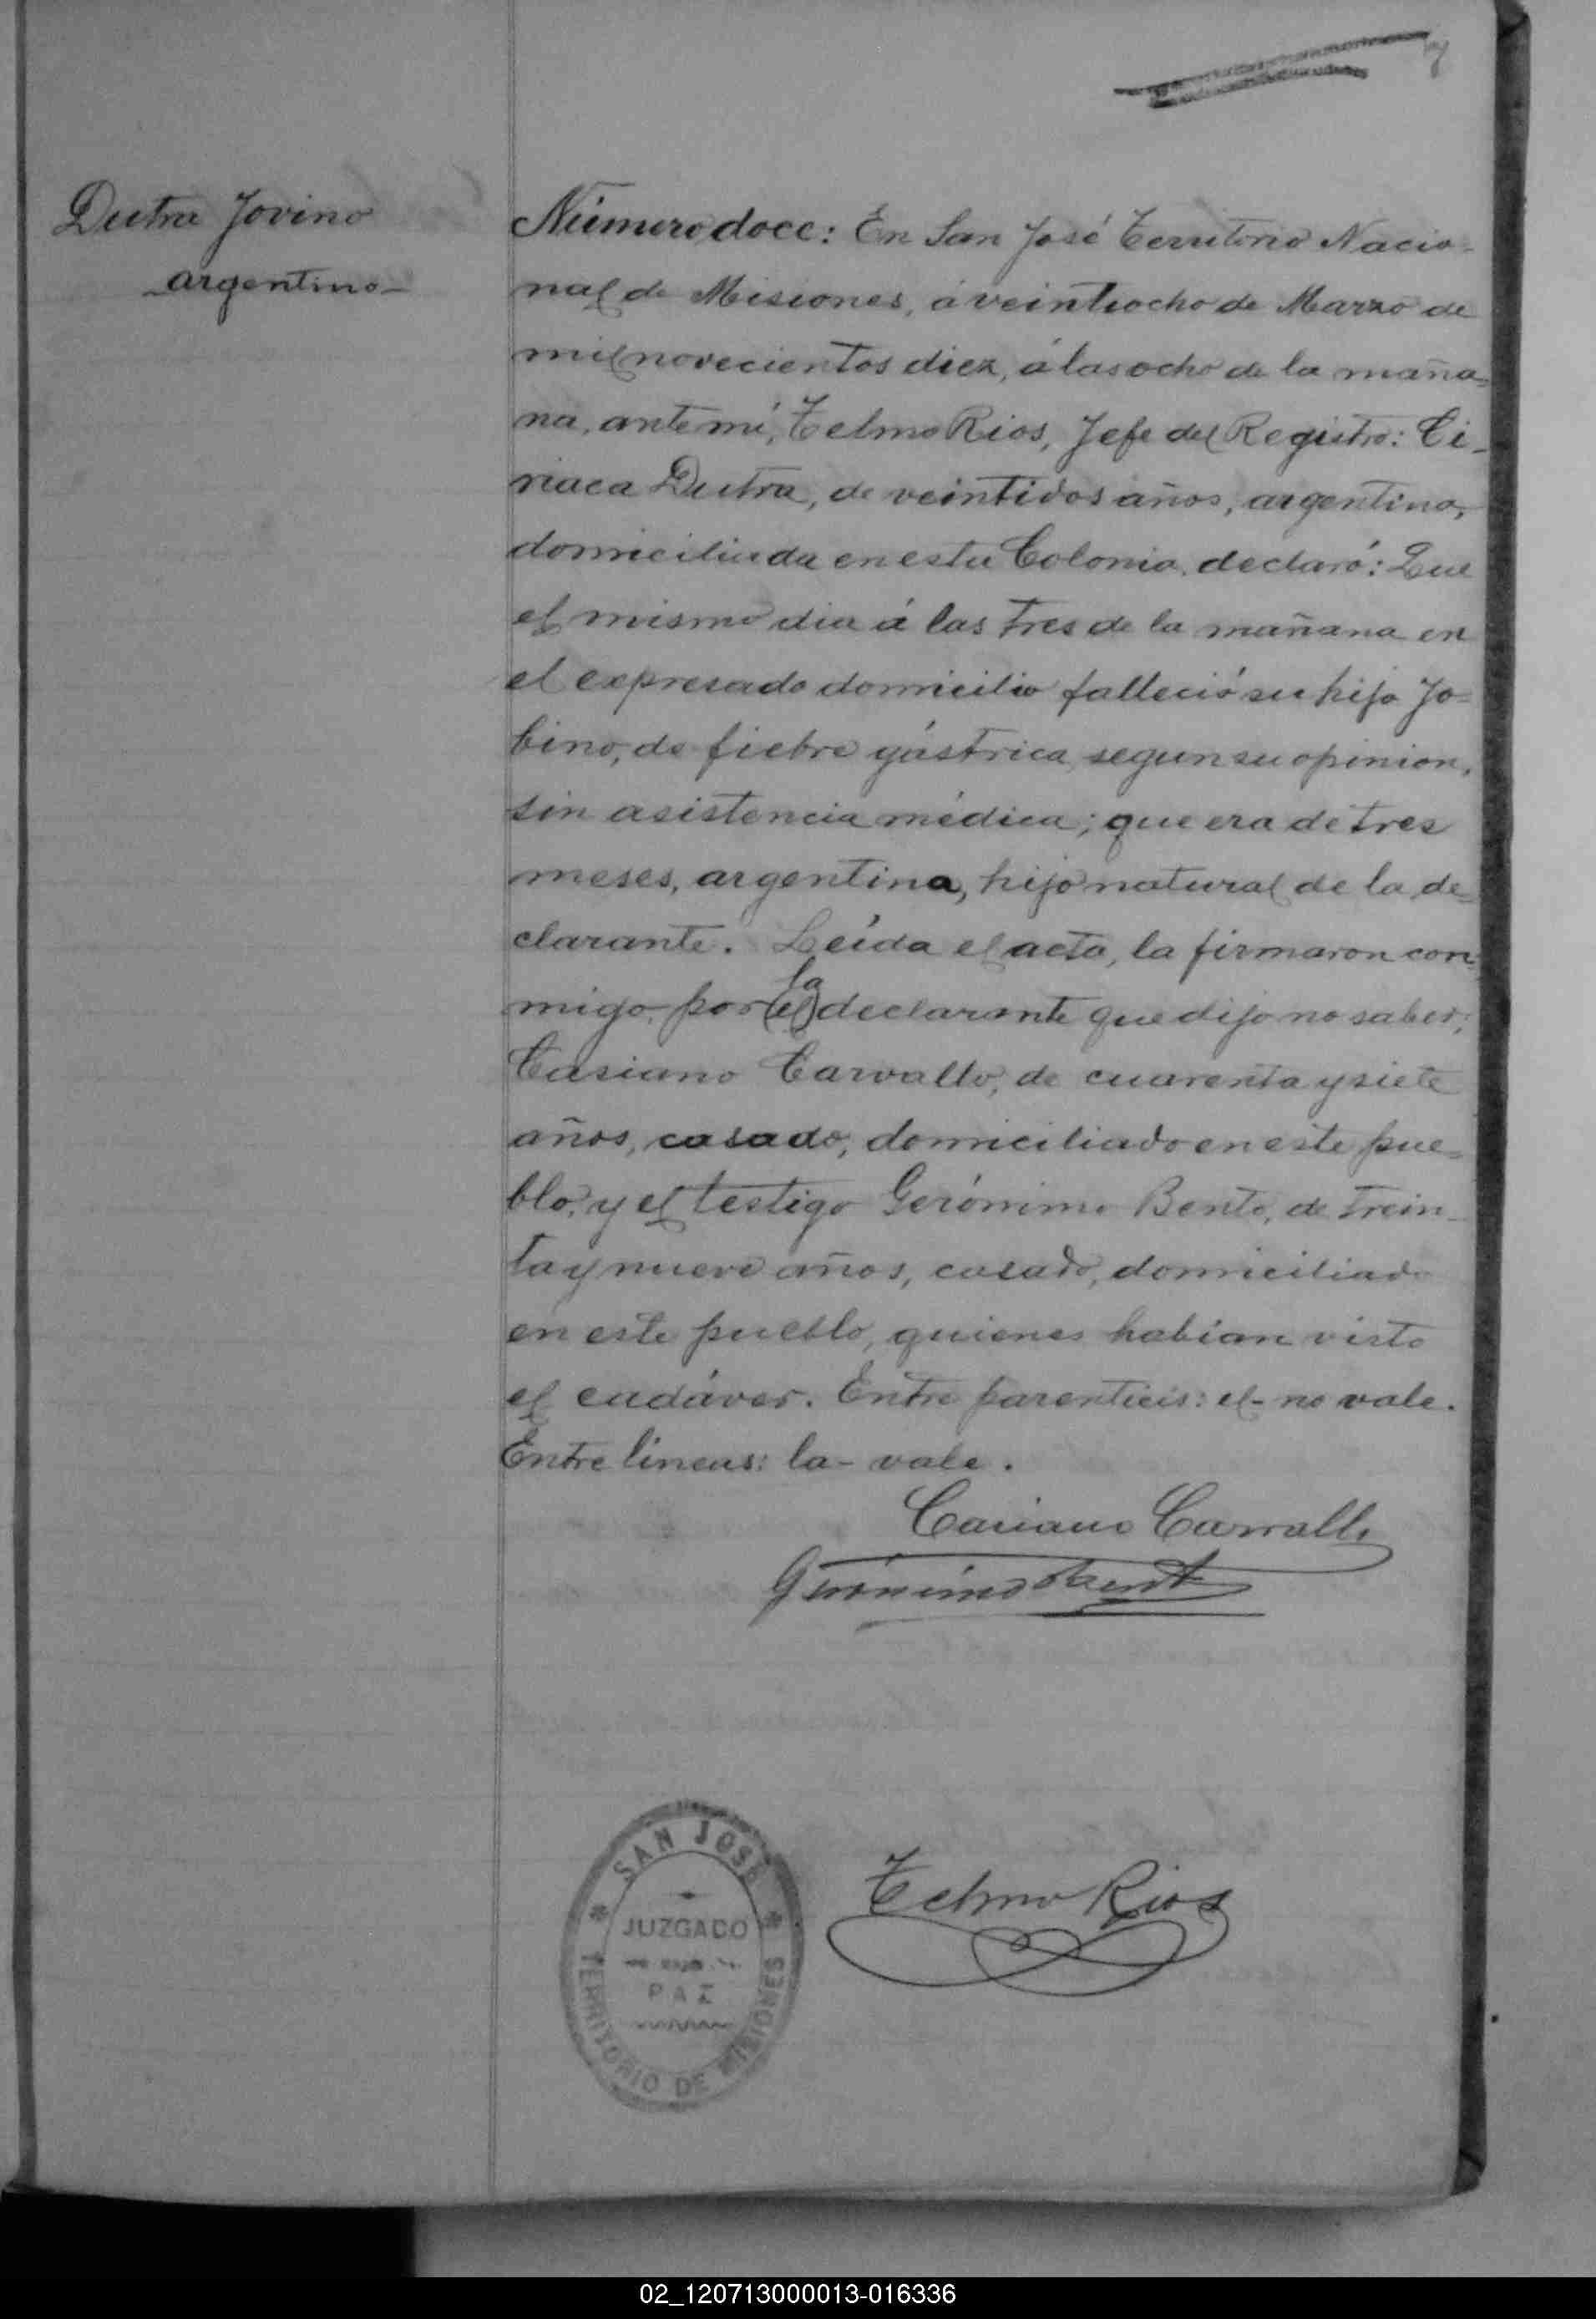 7
Dutra Jovino
argentino-
Número doce: En San José Territorio Nacio-
nal de Misiones, á veintiocho de Marzo de
mil novecientos diez, á las ocho de la maña=
na, ante mí, Telmo Rios, Jefe del Registro: Ci-
riaca Dutra, de veintidos años, argentina,
domiciliada en esta Colonia, declaró: Que
el mismo dia á las tres de la mañana en
el expresado domicilio falleció su hijo Jo=
bino, de fiebre gástrica, segun su opinion,
sin asistencia médica; que era de tres
meses, argentina, hijo natural de la de=
clarante. Leída el acta, la firmaron con
migo, por (el) la declarante que dijo no saber;
Casiano Carvallo, de cuarenta y siete
años, casado, domiciliado en este pue=
blo, y el testigo Gerónimo Bento, de trein-
ta y nueve años, casado, domiciliado
en este pueblo, quienes habian visto
el cadáver. Entre parenticis: el- no vale.
Entre lineas: la- vale.
Casiano Carvallo
Gerónimo Bento
SAN JOSÉ
JUZGADO
PAZ
TERRITORIO DE MISIONES
Telmo Rios
02_120713000013-016336